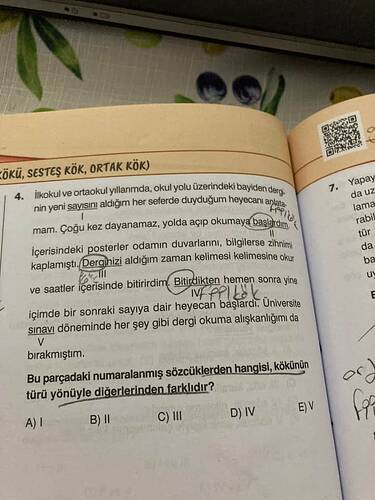 KÖKÜ, SESTEŞ KÖK, ORTAK KÖK)
4. İlkokul ve ortaokul yıllarımda, okul yolu üzerindeki bayiden dergi-
nin yeni sayısını aldığım her seferde duyduğum heyecanı anlata-
I
mam. Çoğu kez dayanamaz, yolda açıp okumaya başlardım.
II
İçerisindeki posterler odamın duvarlarını, bilgilerse zihnimi
kaplamıştı. Derginizi aldığım zaman kelimesi kelimesine okur
III
ve saatler içerisinde bitirirdim. Bitirdikten hemen sonra yine
IV
içimde bir sonraki sayıya dair heyecan başlardı. Üniversite
sınavı döneminde her şey gibi dergi okuma alışkanlığımı da
V
bırakmıştım.
Bu parçadaki numaralanmış sözcüklerden hangisi, kökünün
türü yönüyle diğerlerinden farklıdır?
A) I B) II C) III D) IV E) V
7. Yapay
da uz
lama
rabil
tür
da
ba
uy